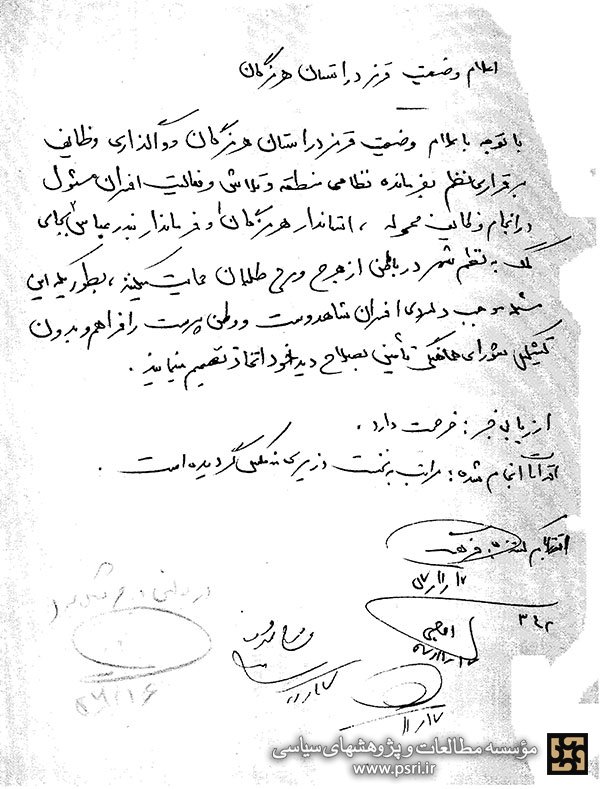 اعلام وضعیت قرمز در استان هرمزگان
با توجه باعلام وضعیت قرمز در استان هرمزگان و واگذاری وظایف
برقراری نظم بفرمانده نظامی منطقه و تلاش و فعالیت افسران مسئول
در انجام وظایف محوله ، استاندار هرمزگان و فرماندار بندرعباس بجای
کمک به نظم شهر در باطن از هرج و مرج طلبان حمایت میکنند ، بطوریکه این
موجب دلسردی افسران شاهدوست و وطن پرست را فراهم و بدون
تشکیل شورای هماهنگی تأمین بصلاحدید خود اتخاذ تصمیم مینمایند .
ارزیابی خبر : صحت دارد .
اقدامات انجام شده : مراتب به نخست وزیری منعکس گردیده است .
۳۴۲
مؤسسه مطالعات و پژوهشهای سیاسی
www.psri.ir